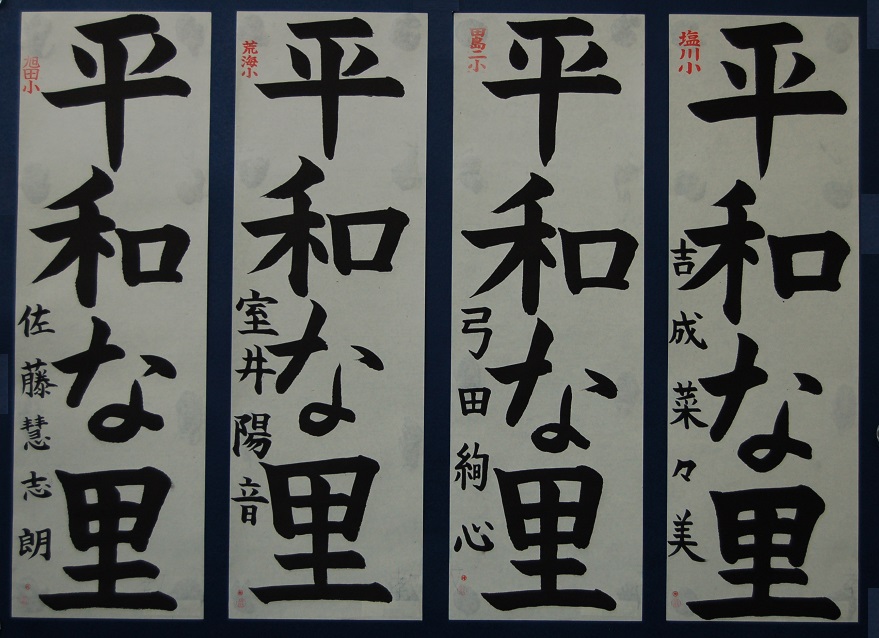 塩川小
平和な里
吉成菜々美
田島二小
平和な里
弓田絢心
荒海小
平和な里
室井陽音
旭田小
平和な里
佐藤慧志朗